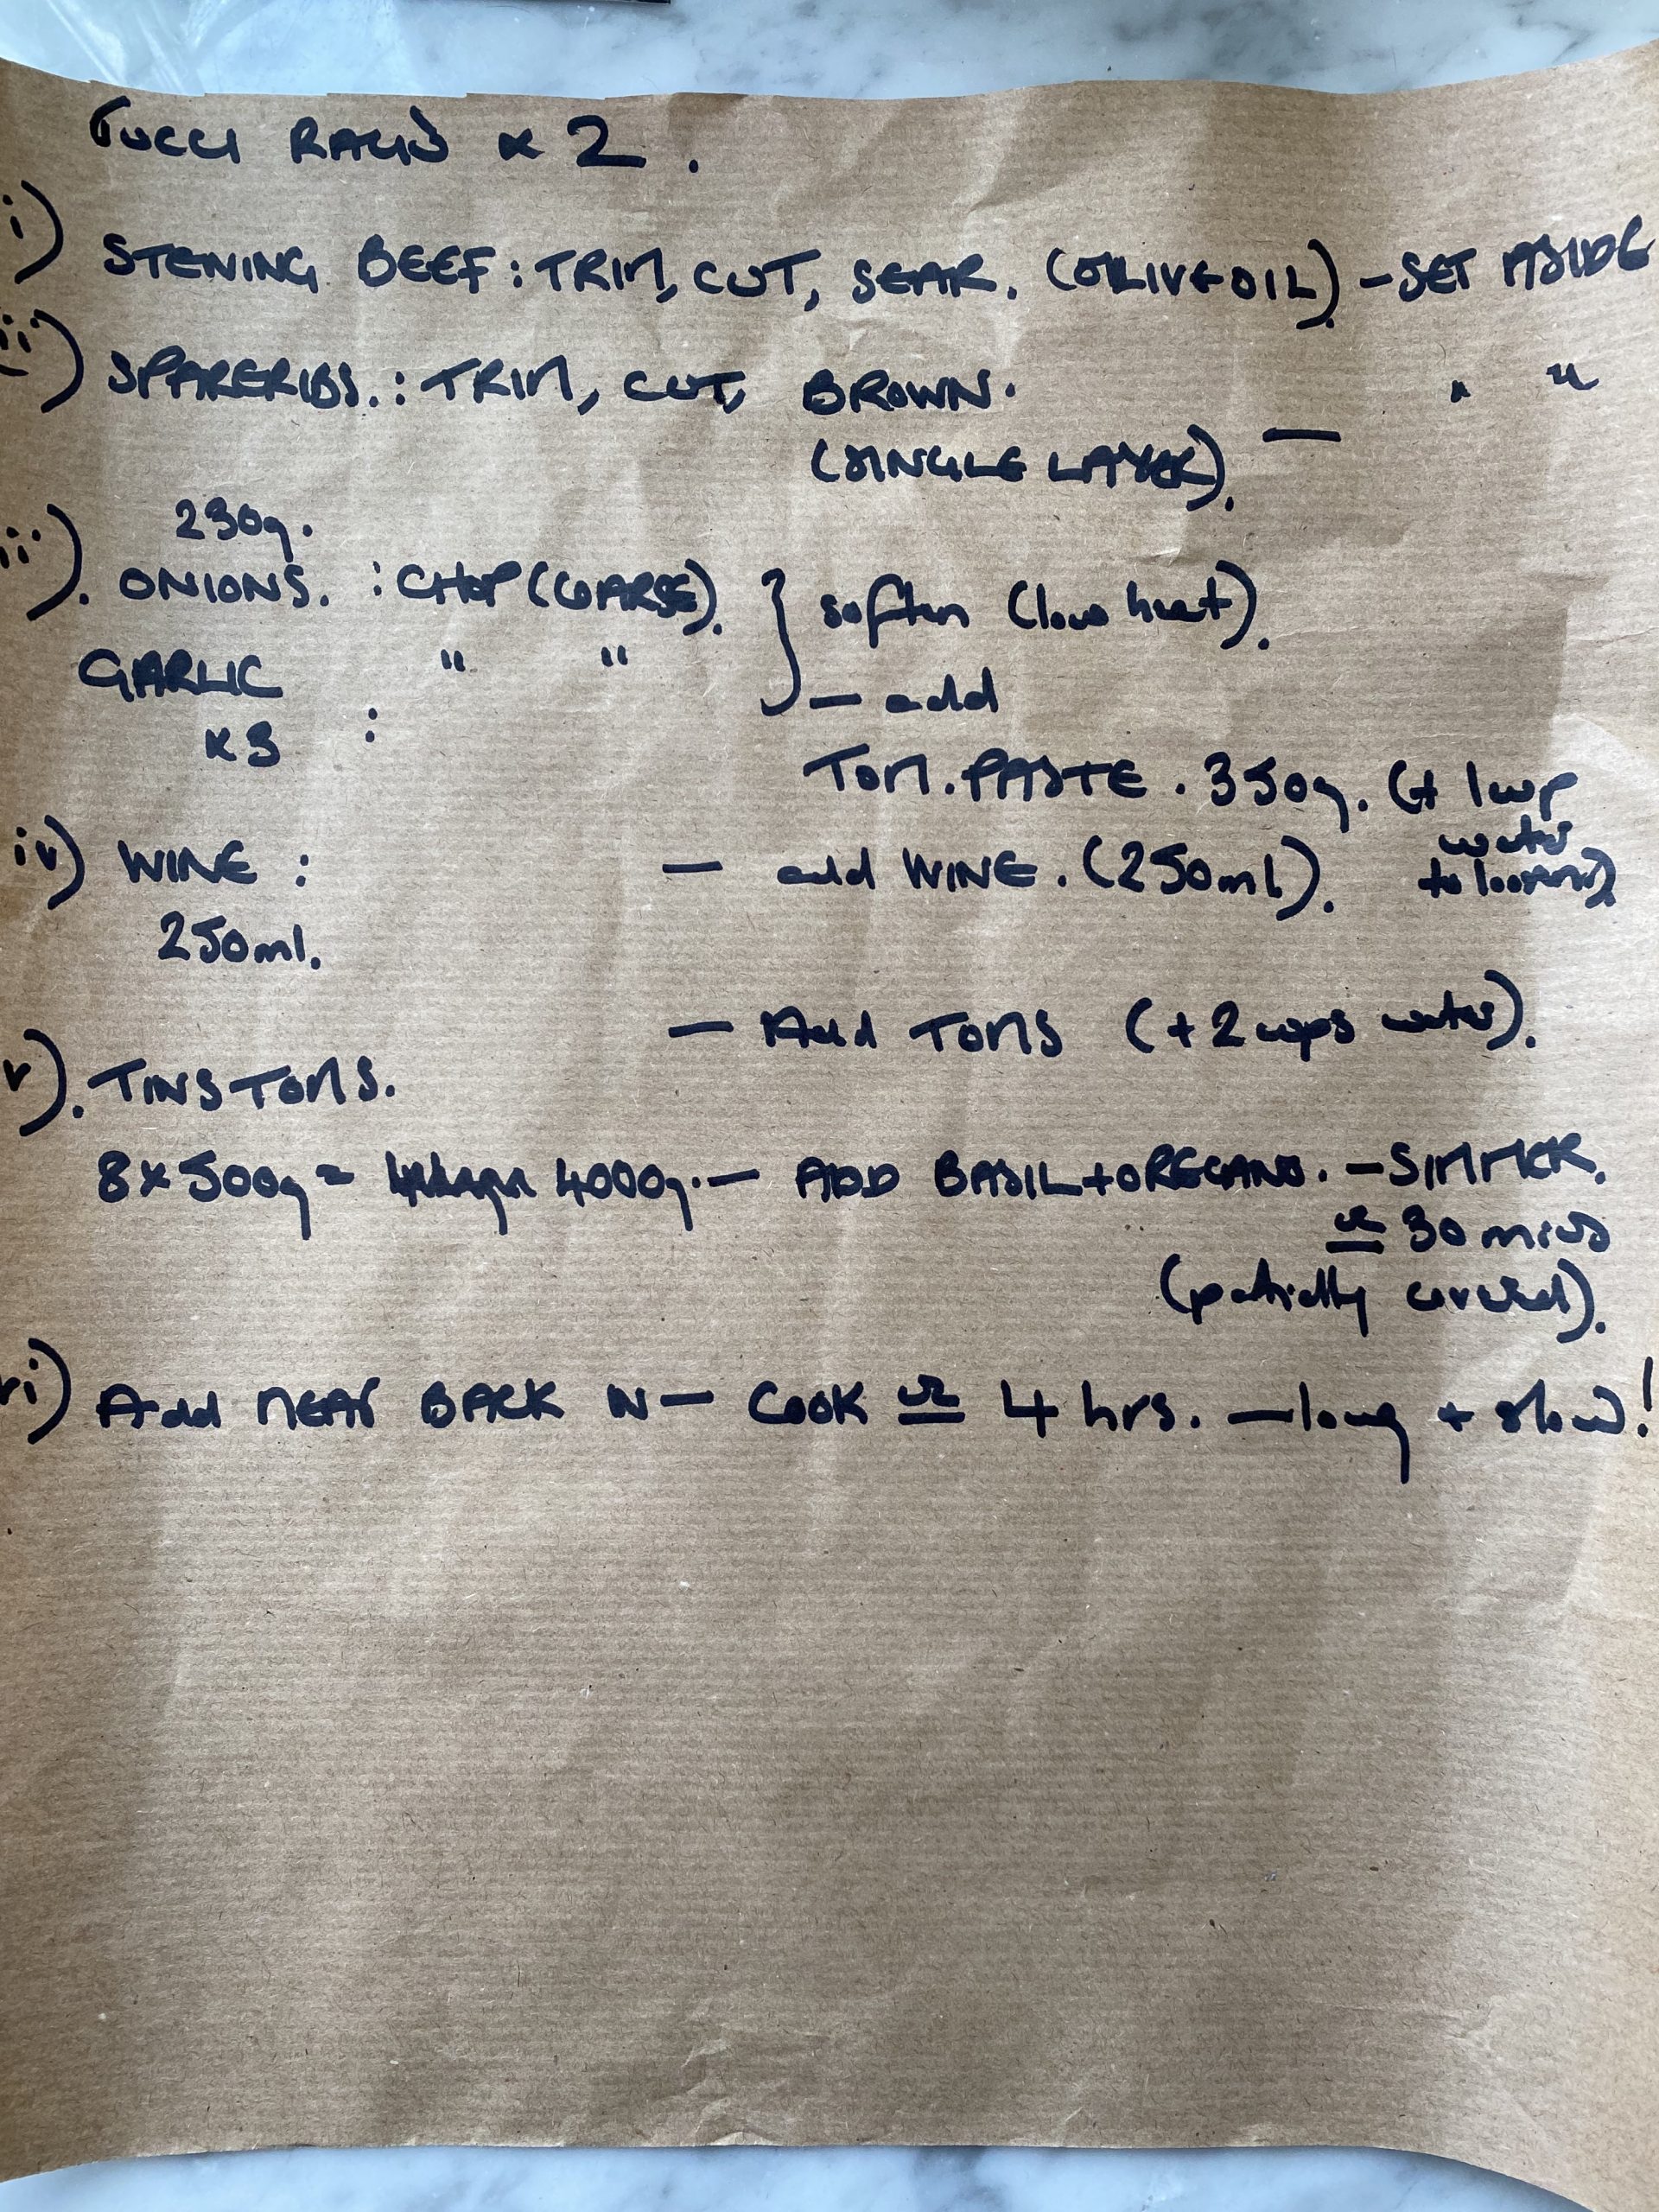 TUCCI RAGÙ x 2.
i) STEWING BEEF: TRIM, CUT, SEAR. (OLIVE OIL). - SET ASIDE
ii) SPARERIBS.: TRIM, CUT, BROWN. " "
(SINGLE LAYER). —
230g.
iii). ONIONS. : CHOP (COARSE). } soften (low heat).
GARLIC " " — add
x3 :
TOM. PASTE. 350g. (+ 1 cup
water
to loosen)
iv) WINE : — add WINE. (250ml).
250ml.
— Add TOMS (+ 2 cups water).
v). TINS TOMS.
8 x 500g = 4000g. — ADD BASIL + OREGANO. - SIMMER.
≅ 30 mins
(partially covered).
vi) Add MEAT BACK IN — COOK ≅ 4 hrs. — long + slow!